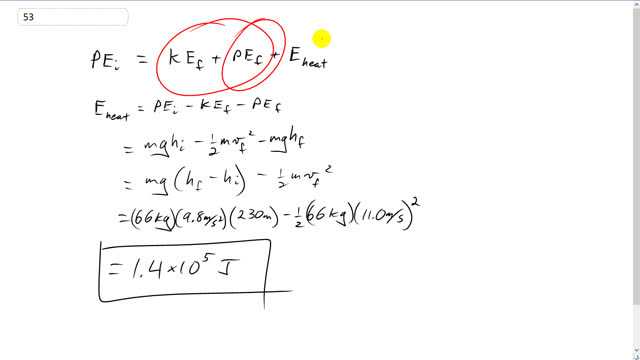 53
PE_i = KE_f + PE_f + E_heat
E_heat = PE_i - KE_f - PE_f
= mgh_i - 1/2 mv_f² - mgh_f
= mg(h_f - h_i) - 1/2 mv_f²
= (66kg)(9.8m/s²)(230m) - 1/2(66kg)(11.0m/s)²
= 1.4 × 10⁵ J